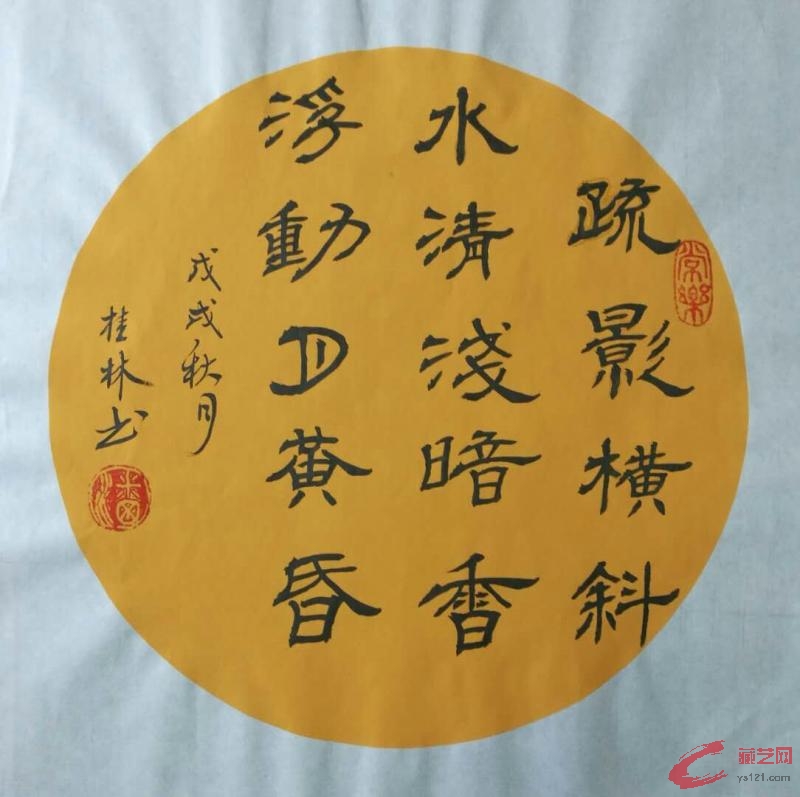 疏影橫斜
水清淺暗香
浮動月黃昏
戊戌秋月
桂林书
常樂
藏艺网
ys121.com